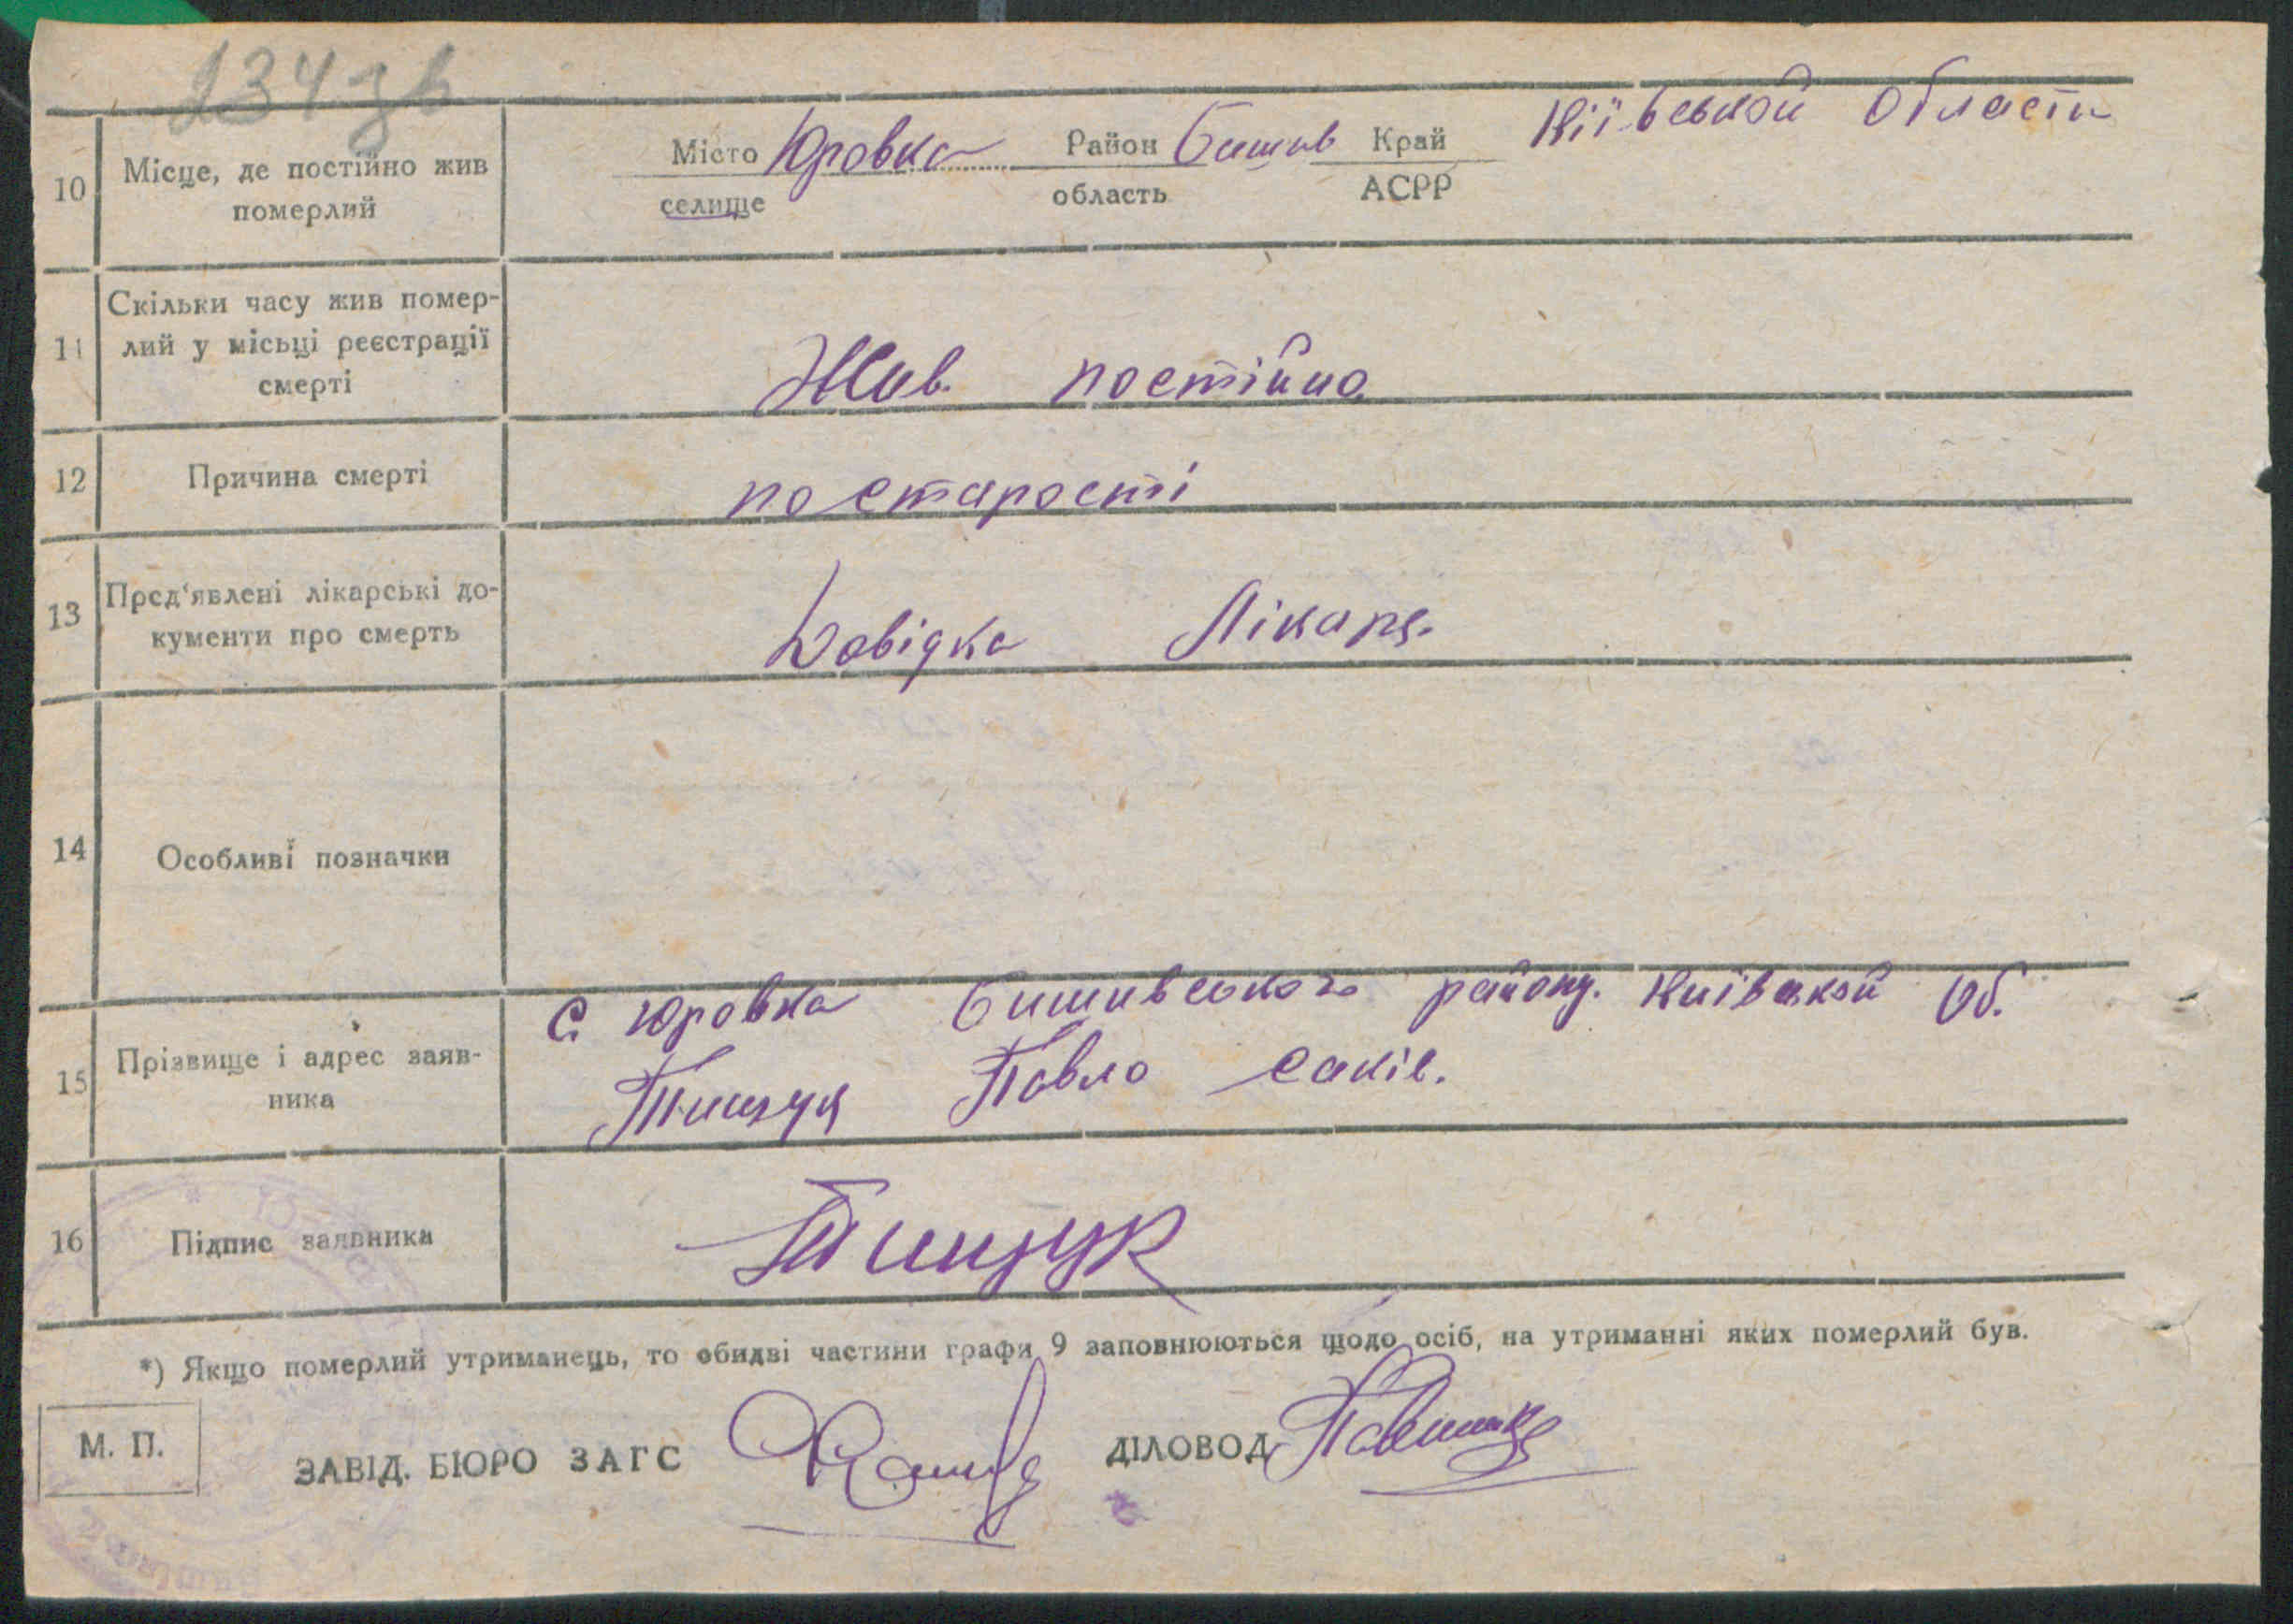 134зв
10 Місце, де постійно жив померлий
Місто Юровка Район Бишив Край Кіівськой Области
селище область АСРР
11 Скільки часу жив помер-
лий у місьці реєстрації
смерті
Жив. постійно
12 Причина смерті
по старості
13 Пред'явлені лікарські до-
кументи про смерть
Довідка Лікаря.
14 Особливі позначки
15 Прізвище і адрес заяв-
ника
С. Юровка Бишивського району. Киівской Об.
Тищук Павло
16 Підпис заявника
Тищук
*) Якщо померлий утриманець, то обидві частини графи 9 заповнюються щодо осіб, на утриманні яких померлий був.
М. П.
ЗАВІД. БЮРО ЗАГС ДІЛОВОД